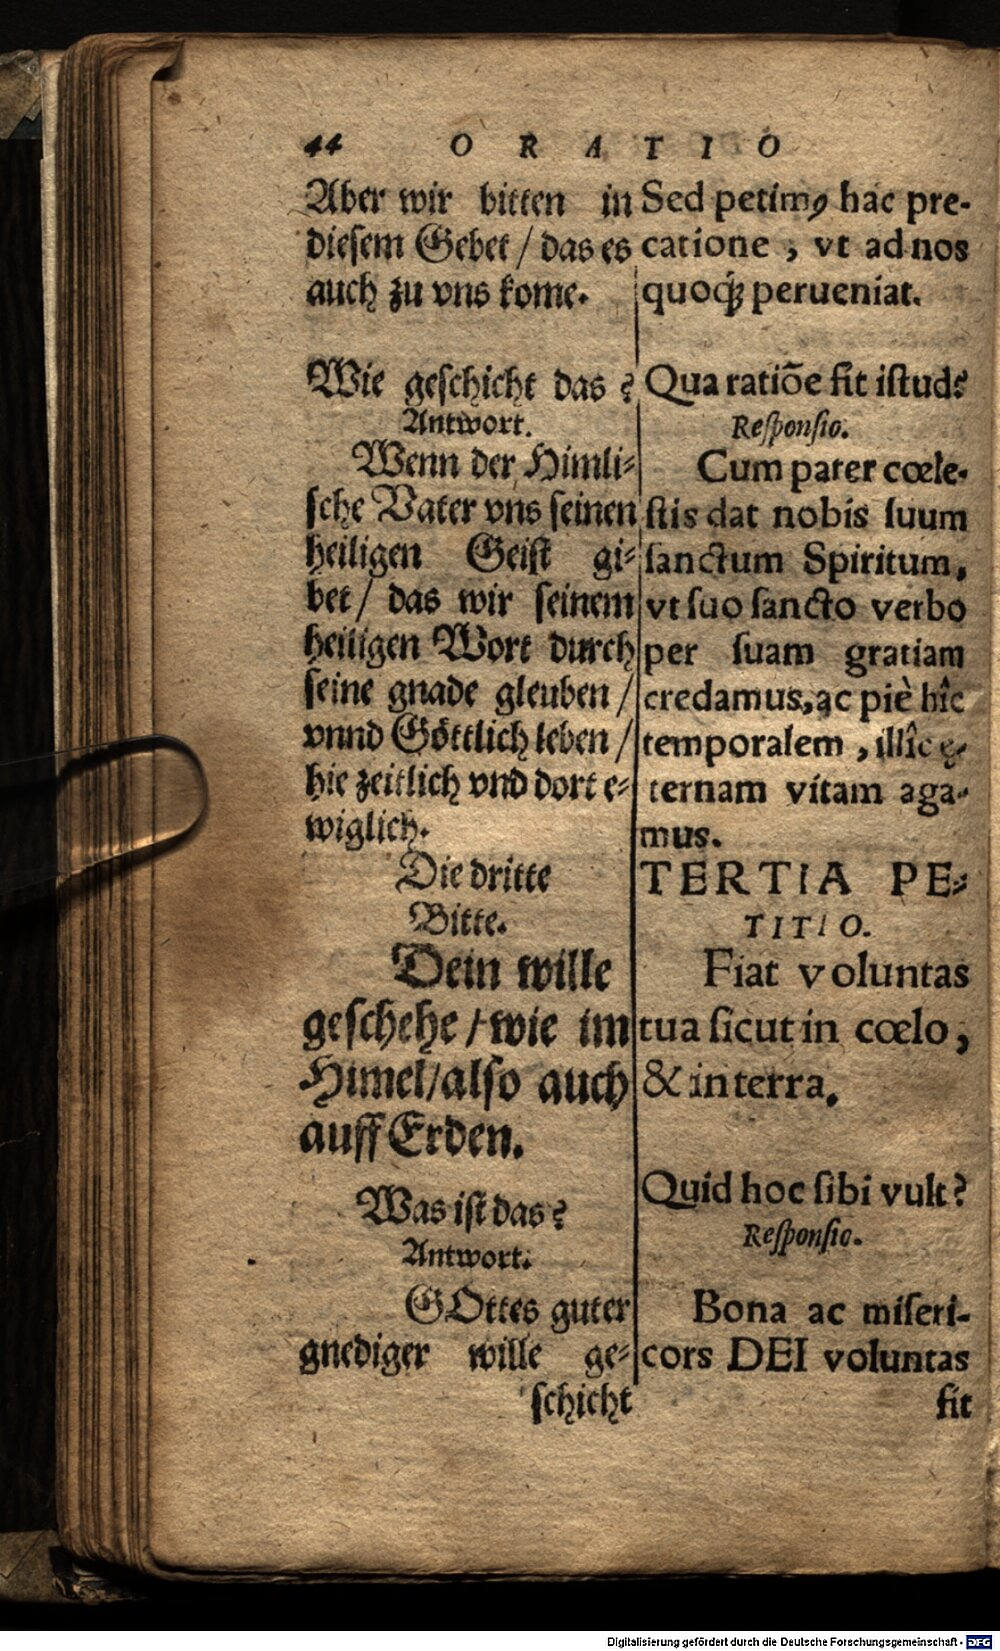 44 ORATIO
Aber wir bitten in
diesem Gebet / das es
auch zu vns kome.
Wie geschicht das?
Antwort.
Wenn der Himli-
sche Vater vns seinen
heiligen Geist gi-
bet / das wir seinem
heiligen Wort durch
seine gnade gleuben /
vnnd Göttlich leben /
hie zeitlich vnd dort e-
wiglich.
Die dritte
Bitte.
Dein wille
geschehe / wie im
Himel / also auch
auff Erden.
Was ist das?
Antwort.
GOttes guter
gnediger wille ge-
schicht
Sed petimꝰ hac pre-
catione, vt ad nos
quoq; perueniat.
Qua ratiõe fit istud?
Responsio.
Cum pater cœle-
stis dat nobis suum
sanctum Spiritum,
vt suo sancto verbo
per suam gratiam
credamus, ac piè hîc
temporalem, illîc ę-
ternam vitam aga-
mus.
TERTIA PE-
TITIO.
Fiat voluntas
tua sicut in cœlo,
& in terra.
Quid hoc sibi vult?
Responsio.
Bona ac miseri-
cors DEI voluntas
fit
Digitalisierung gefördert durch die Deutsche Forschungsgemeinschaft - DFG